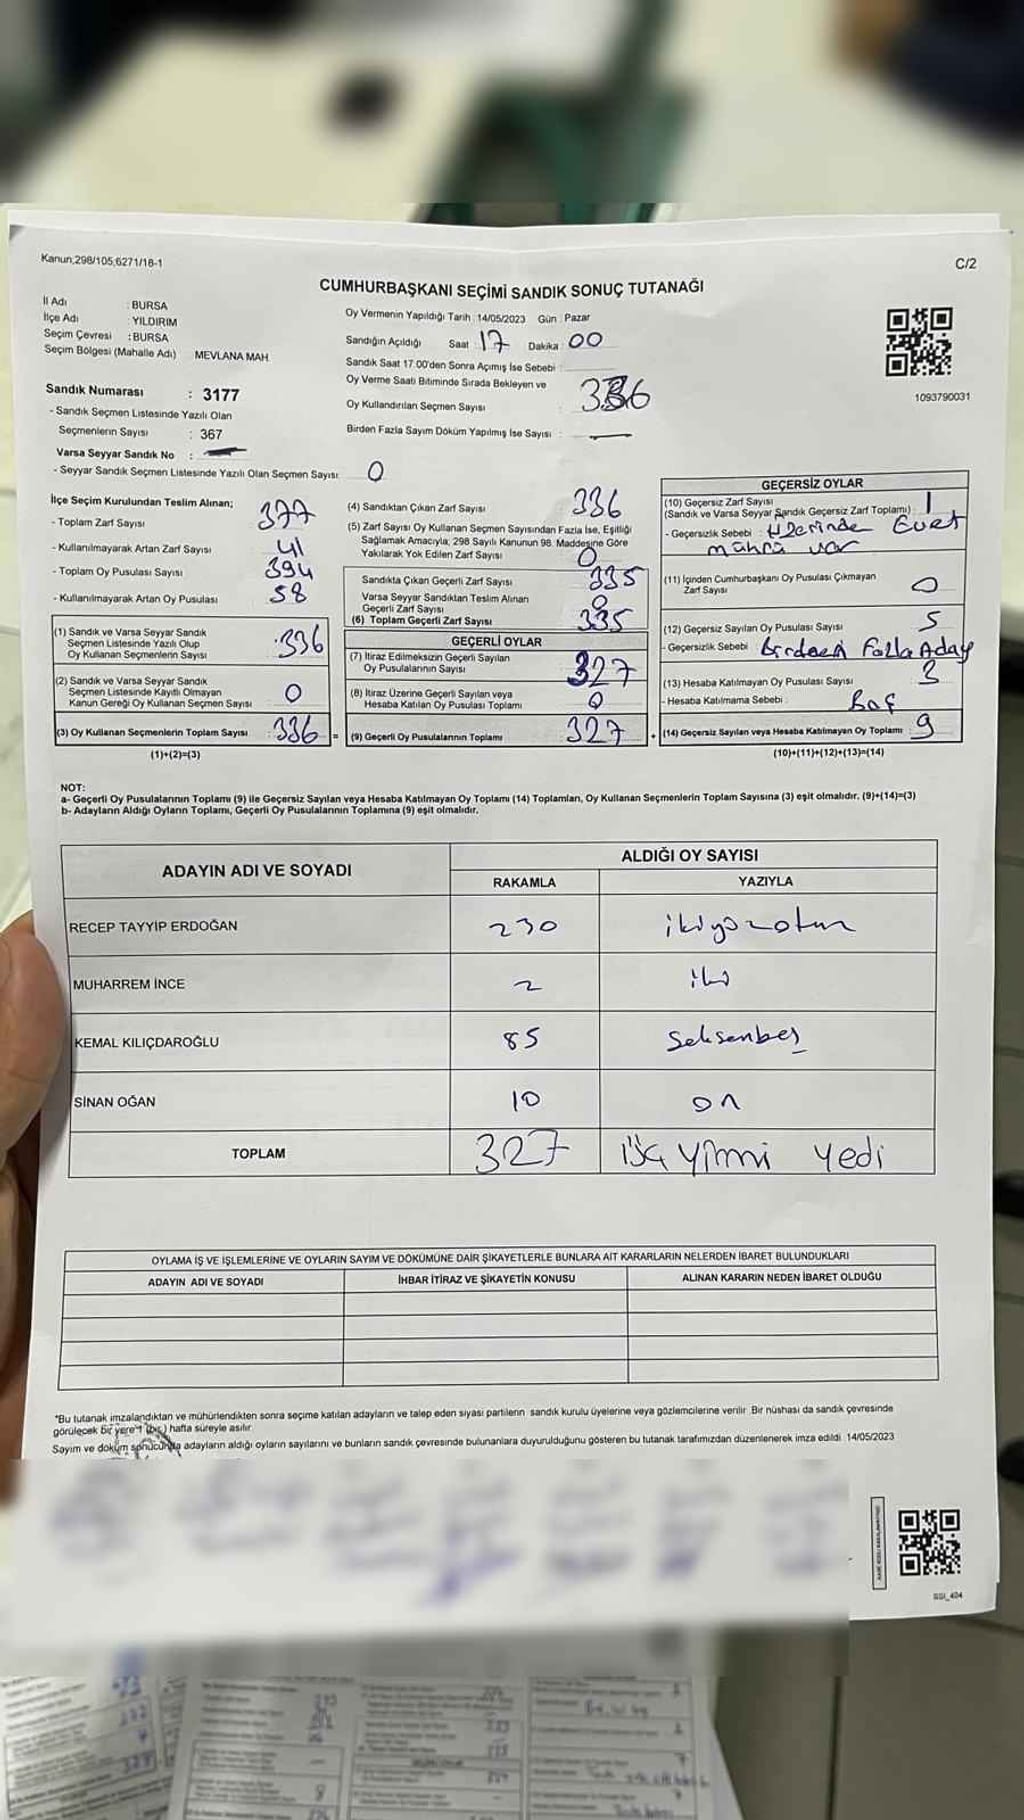 Kanun,298/105,6271/18-1
C/2
CUMHURBAŞKANI SEÇİMİ SANDIK SONUÇ TUTANAĞI
İl Adı : BURSA
İlçe Adı : YILDIRIM
Seçim Çevresi : BURSA
Seçim Bölgesi (Mahalle Adı) MEVLANA MAH.
Sandık Numarası : 3177
- Sandık Seçmen Listesinde Yazılı Olan
Seçmenlerin Sayısı : 367
Varsa Seyyar Sandık No :
- Seyyar Sandık Seçmen Listesinde Yazılı Olan Seçmen Sayısı: 0
Oy Vermenin Yapıldığı Tarih : 14/05/2023 Gün : Pazar
Sandığın Açıldığı Saat : 17 Dakika : 00
Sandık Saat 17:00'den Sonra Açımış İse Sebebi :
Oy Verme Saati Bitiminde Sırada Bekleyen ve
Oy Kullandırılan Seçmen Sayısı : 336
Birden Fazla Sayım Döküm Yapılmış İse Sayısı : —
1093790031
İlçe Seçim Kurulundan Teslim Alınan;
- Toplam Zarf Sayısı 377
- Kullanılmayarak Artan Zarf Sayısı 41
- Toplam Oy Pusulası Sayısı 394
- Kullanılmayarak Artan Oy Pusulası 58
(1) Sandık ve Varsa Seyyar Sandık
Seçmen Listesinde Yazılı Olup
Oy Kullanan Seçmenlerin Sayısı : 336
(2) Sandık ve Varsa Seyyar Sandık
Seçmen Listesinde Kayıtlı Olmayan
Kanun Gereği Oy Kullanan Seçmen Sayısı 0
(3) Oy Kullanan Seçmenlerin Toplam Sayısı : 336 =
(1)+(2)=(3)
(4) Sandıktan Çıkan Zarf Sayısı 336
(5) Zarf Sayısı Oy Kullanan Seçmen Sayısından Fazla İse, Eşitliği
Sağlamak Amacıyla, 298 Sayılı Kanunun 98. Maddesine Göre
Yakılarak Yok Edilen Zarf Sayısı 0
Sandıkta Çıkan Geçerli Zarf Sayısı 335
Varsa Seyyar Sandıktan Teslim Alınan
Geçerli Zarf Sayısı 0
(6) Toplam Geçerli Zarf Sayısı 335
GEÇERLİ OYLAR
(7) İtiraz Edilmeksizin Geçerli Sayılan
Oy Pusulalarının Sayısı 327
(8) İtiraz Üzerine Geçerli Sayılan veya
Hesaba Katılan Oy Pusulası Toplamı 0
(9) Geçerli Oy Pusulalarının Toplamı 327 +
GEÇERSİZ OYLAR
(10) Geçersiz Zarf Sayısı
(Sandık ve Varsa Seyyar Sandık Geçersiz Zarf Toplamı) : 1
- Geçersizlik Sebebi : Üzerinde Evet
mührü var
(11) İçinden Cumhurbaşkanı Oy Pusulası Çıkmayan
Zarf Sayısı 0
(12) Geçersiz Sayılan Oy Pusulası Sayısı 5
- Geçersizlik Sebebi Birden Fazla Aday
(13) Hesaba Katılmayan Oy Pusulası Sayısı 3
- Hesaba Katılmama Sebebi : Boş
(14) Geçersiz Sayılan veya Hesaba Katılmayan Oy Toplamı : 9
(10)+(11)+(12)+(13)=(14)
NOT:
a- Geçerli Oy Pusulalarının Toplamı (9) ile Geçersiz Sayılan veya Hesaba Katılmayan Oy Toplamı (14) Toplamları, Oy Kullanan Seçmenlerin Toplam Sayısına (3) eşit olmalıdır. (9)+(14)=(3)
b- Adayların Aldığı Oyların Toplamı, Geçerli Oy Pusulalarının Toplamına (9) eşit olmalıdır.
ADAYIN ADI VE SOYADI ALDIĞI OY SAYISI
RAKAMLA YAZIYLA
RECEP TAYYİP ERDOĞAN 230 ikiyüzotuz
MUHARREM İNCE 2 iki
KEMAL KILIÇDAROĞLU 85 Seksenbeş
SİNAN OĞAN 10 on
TOPLAM 327 üç yirmi yedi
OYLAMA İŞ VE İŞLEMLERİNE VE OYLARIN SAYIM VE DÖKÜMÜNE DAİR ŞİKAYETLERLE BUNLARA AİT KARARLARIN NELERDEN İBARET BULUNDUKLARI
ADAYIN ADI VE SOYADI İHBAR İTİRAZ VE ŞİKAYETİN KONUSU ALINAN KARARIN NEDEN İBARET OLDUĞU
*Bu tutanak imzalandıktan ve mühürlendikten sonra seçime katılan adayların ve talep eden siyasi partilerin sandık kurulu üyelerine veya gözlemcilerine verilir. Bir nüshası da sandık çevresinde
görülecek bir yere 1 (bir) hafta süreyle asılır.
Sayım ve döküm sonucunda adayların aldığı oyların sayılarını ve bunların sandık çevresinde bulunanlara duyurulduğunu gösteren bu tutanak tarafımızdan düzenlenerek imza edildi. 14/05/2023